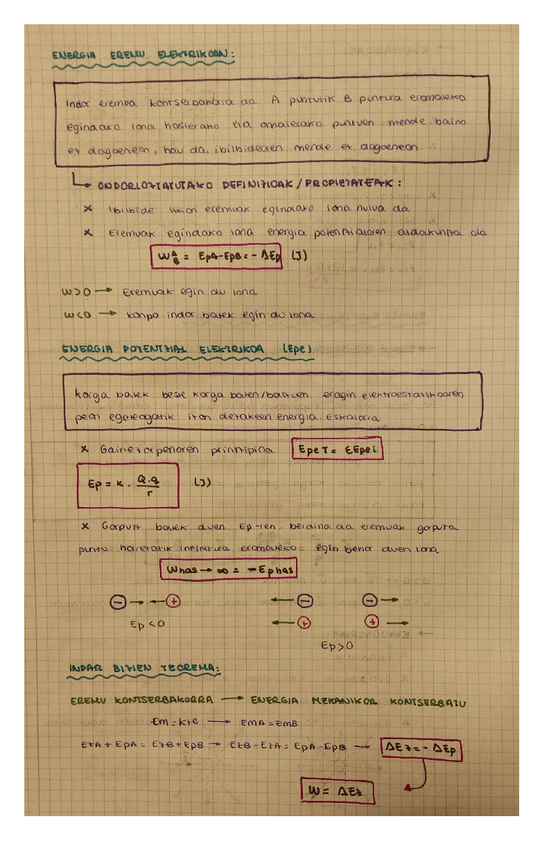 ENERGIA EREMU ELEKTRIKOAN:
Indar eremua kontserbakorra da A puntutik B puntura eramateko
egindako lana hasierako eta amaierako puntuen mende baino
ez dagoenean, hau da, ibilbidearen mende ez dagoenean.
ONDORIOZTATUTAKO DEFINIZIOAK / PROPIETATEAK:
x Ibilbide itxian eremuak egindako lana nulua da
x Eremuak egindako lana energia potentzialaren aldakuntza da
W A B = EpA - EpB = - ΔEp (J)
W>0 → Eremuak egin du lana
W<0 → kanpo indar batek egin du lana
ENERGIA POTENTZIAL ELEKTRIKOA (Epe)
karga batek beste karga baten/batzuen eragin elektroestatikoaren
pean egoteagatik izan dezakeen energia. Eskalarra
x Gainezarpenaren printzipioa EpeT = ΣEpei
Ep = K · Q·q / r (J)
x Gorputz batek duen Ep-ren berdina da eremuak gorputza
puntu horretatik infinitura eramateko egin behar duen lana
Whas → ∞ = - Ephas
⊖→ ←⊕ ←⊖ ⊖→
←⊕ ⊕→
Ep<0
Ep>0
INDAR BIZIEN TEOREMA:
EREMU KONTSERBAKORRA → ENERGIA MEKANIKOA KONTSERBATU
Em = kte → EmA = EmB
EzA + EpA = EzB + EpB → EzB - EzA = EpA - EpB → ΔEz = - ΔEp
W = ΔEz